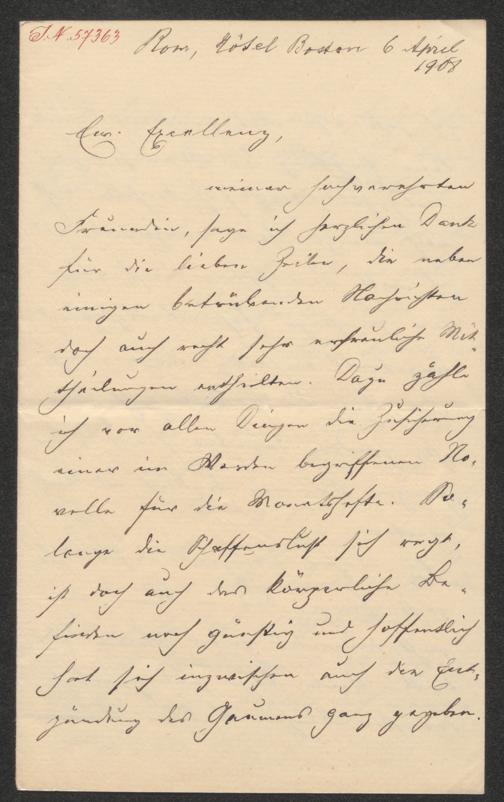 I.N. 57363
Rom, Hôtel Boston 6 April
1908
Ew. Excellenz,
meiner hochverehrten
Freundin, sage ich herzlichen Dank
für die lieben Zeilen, die neben
einigen betrübenden Nachrichten
doch auch recht sehr erfreuliche Mit-
theilungen enthielten. Dazu zähle
ich vor allen Dingen die Zusicherung
einer im Werden begriffenen No-
velle für die Monatshefte. So-
lange die Schaffenslust sich regt,
ist doch auch das körperliche Be-
finden noch günstig und hoffentlich
hat sich inzwischen auch die Ent-
zündung des Gaumens ganz gegeben.